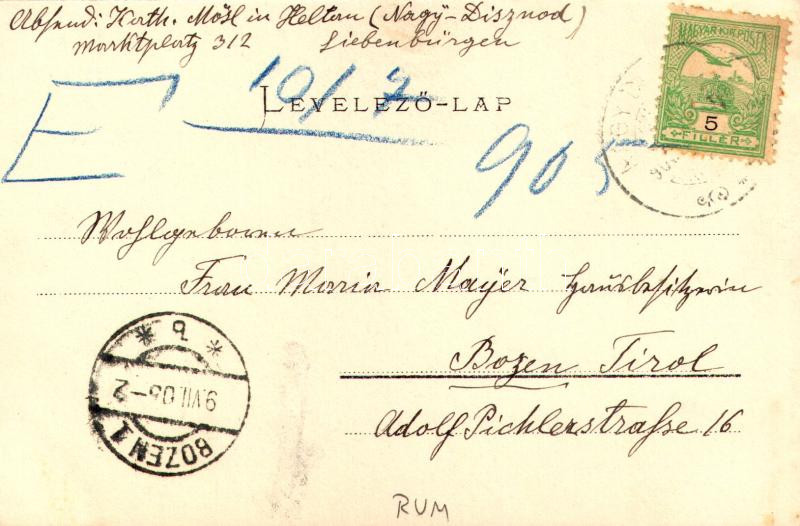 Absend: Kath. Mösl in Heltau (Nagy-Disznod)
Marktplatz 312 Siebenbürgen
E 10/7
905
LEVELEZŐ-LAP
MAGYAR KIR. POSTA
5
FILLÉR
Wohlgeboren
Frau Maria Mayer Hausbesitzerin
Bozen Tirol
Adolf Pichlerstraße 16
* b *
9.VII.05-2
BOZEN 1
RUM